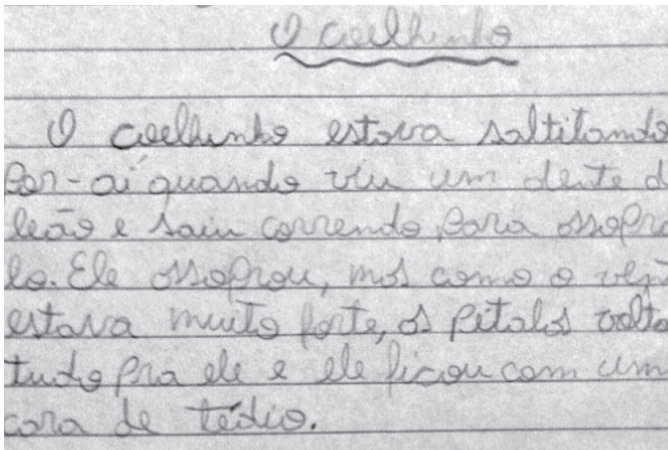 O coelhinho
O coelhinho estava saltitando
por-aí quando viu um dente d
leão e saiu correndo para assopra
lo. Ele assoprou, mas como o ven
estava muito forte, as pétalas volta
tudo pra ele e ele ficou com um
cara de tédio.